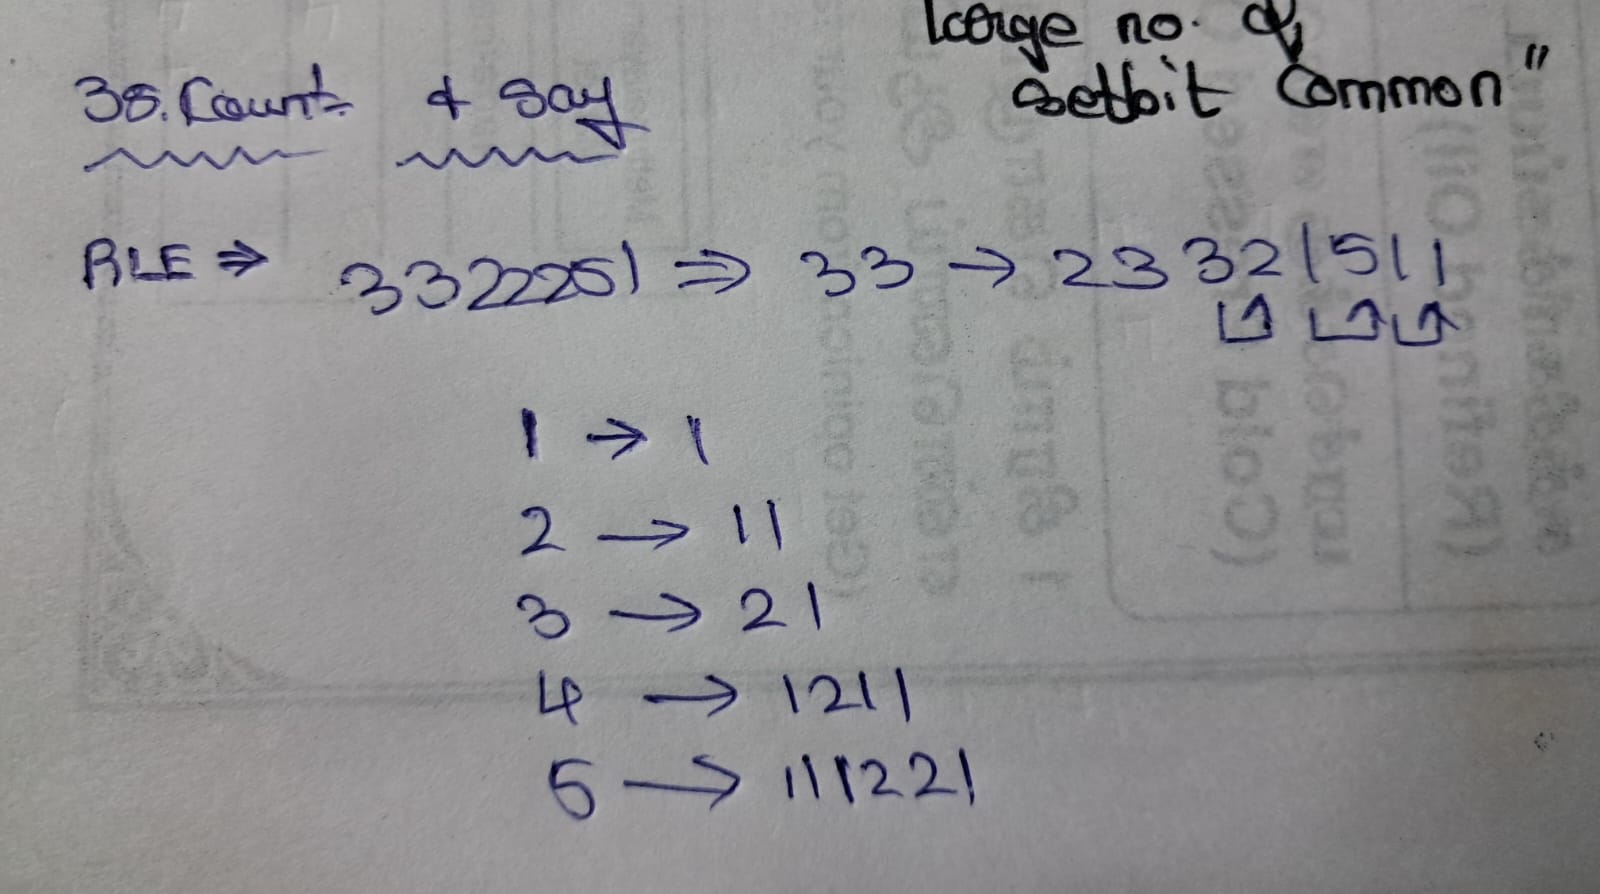 large no. of
setbit common"
38. Count & Say
RLE ⇒ 3322251 ⇒ 33 → 23 321511
1 → 1
2 → 11
3 → 21
4 → 1211
5 → 111221